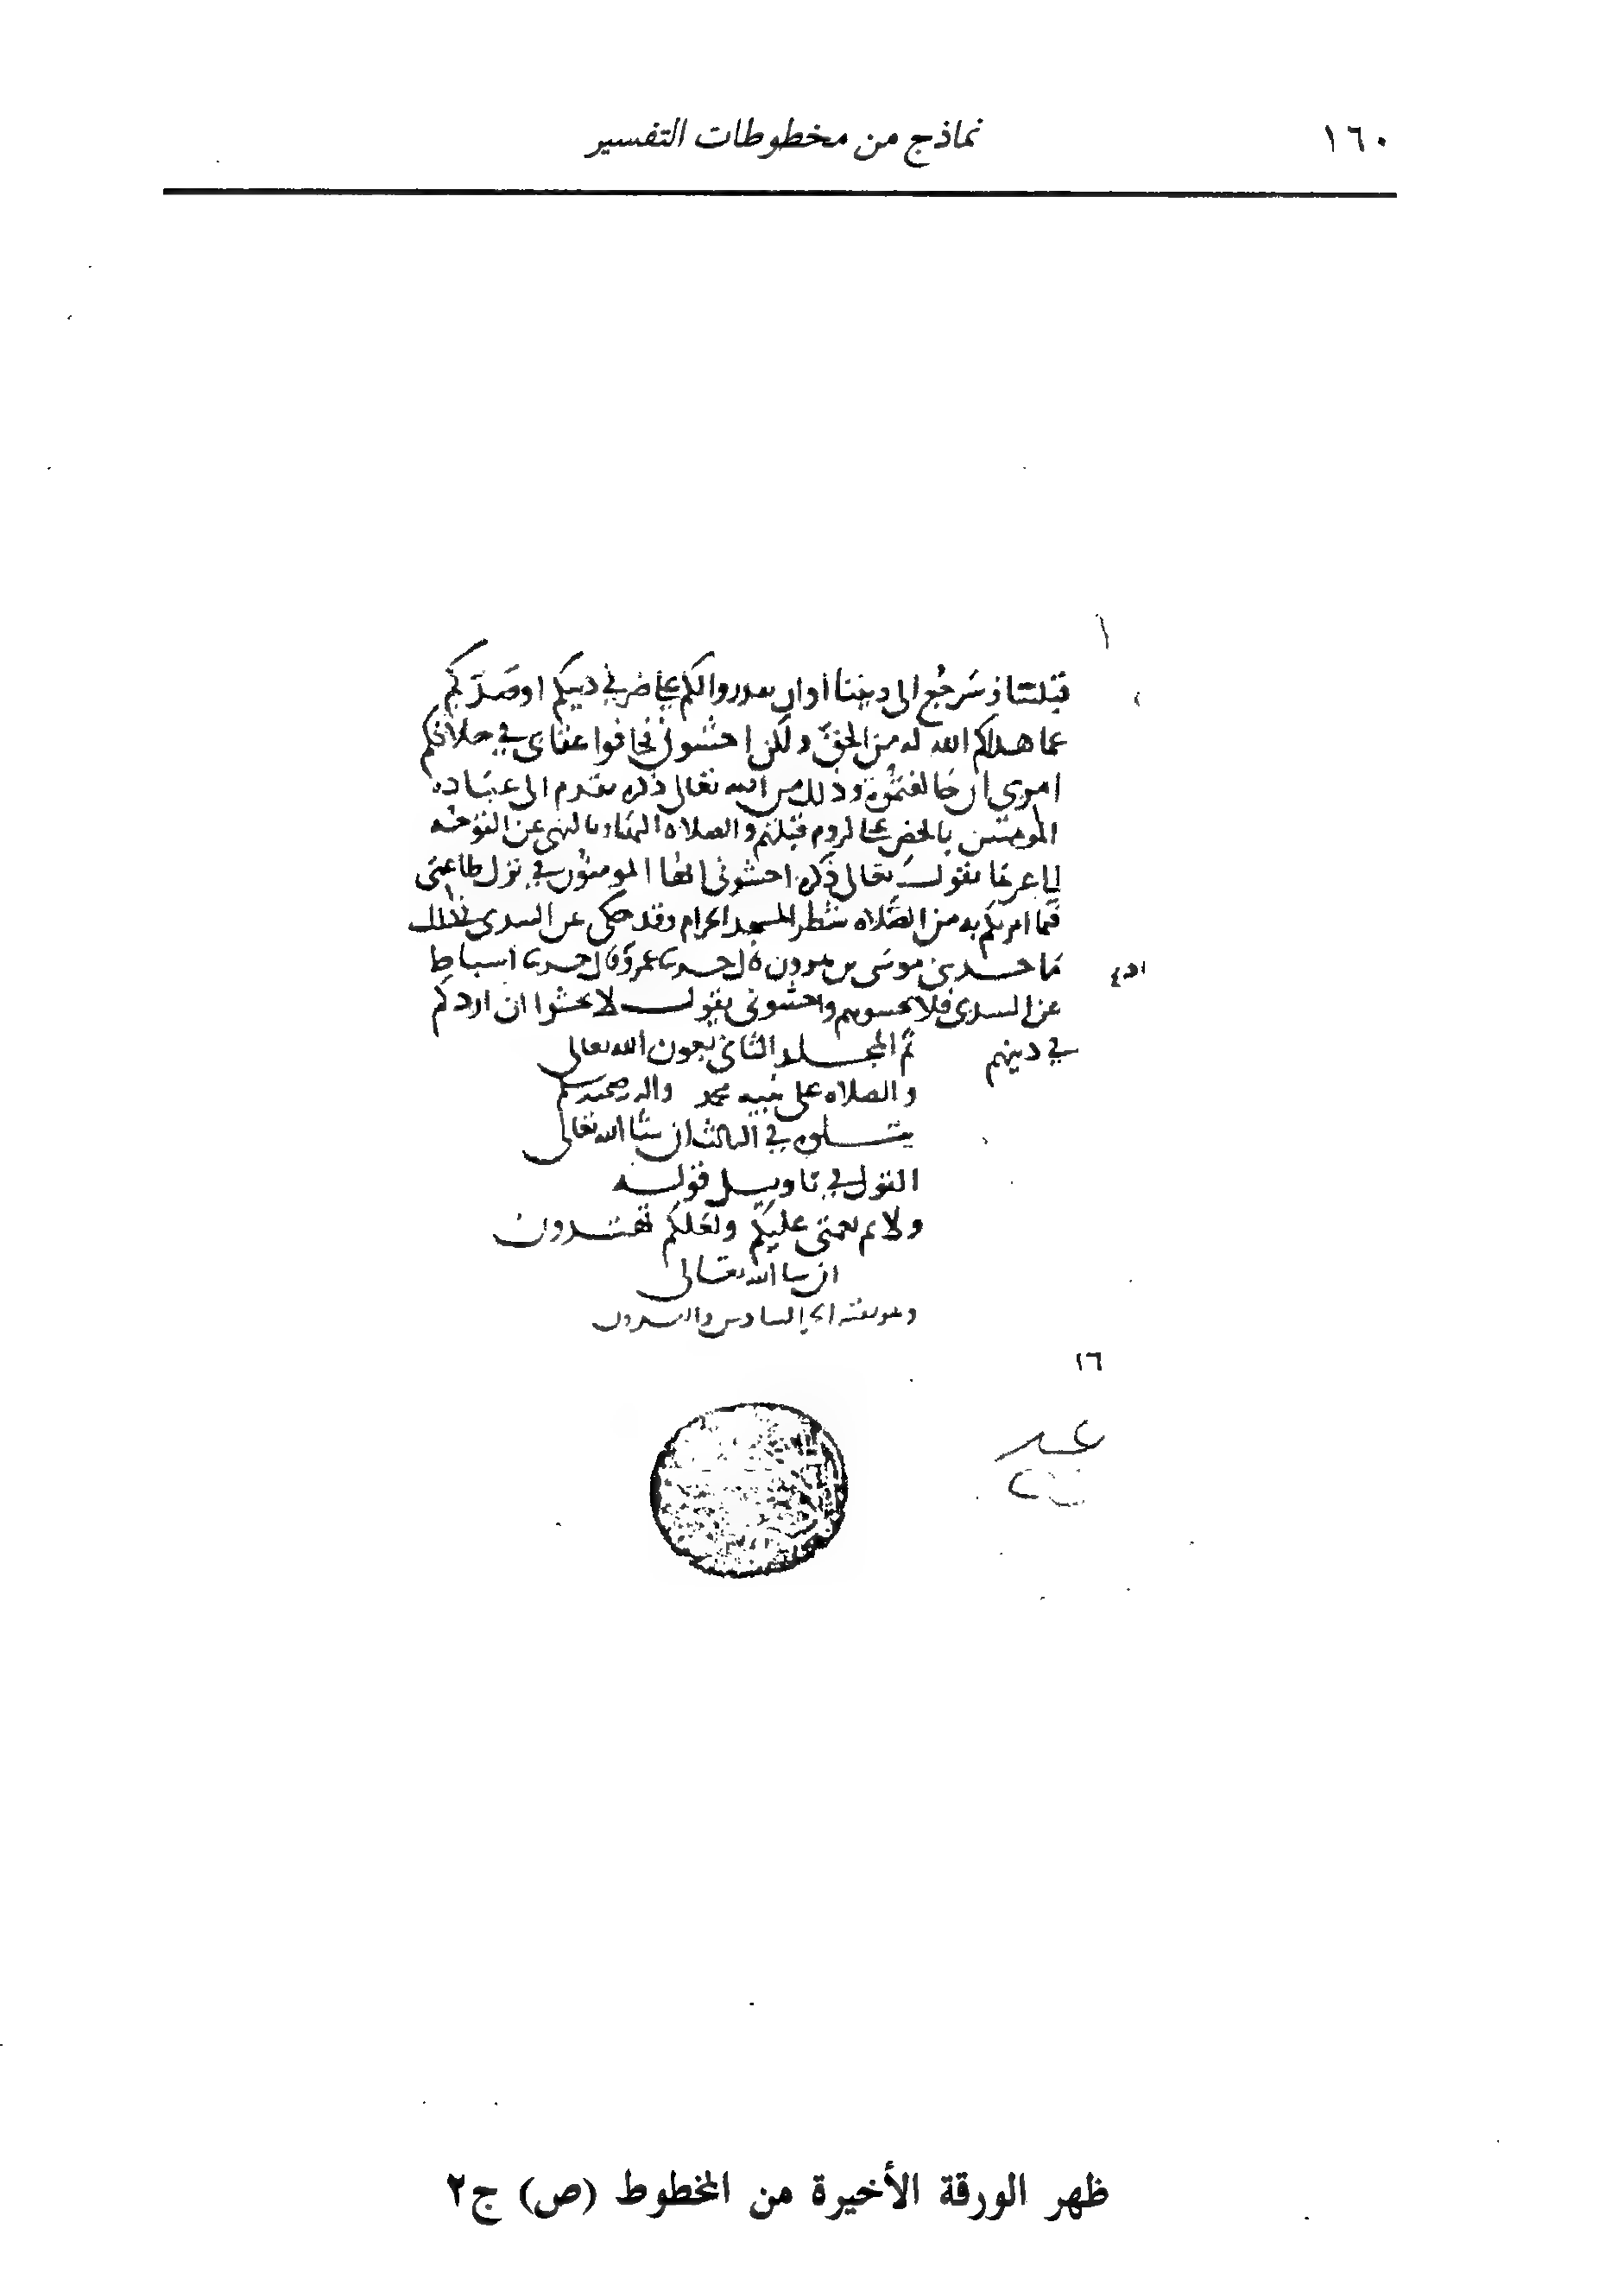 ١٦٠
نماذج من مخطوطات التفسير
قبلتنا وسيرجع الى ديننا اوان يقدروا لكم على ضر في دينكم او صدكم
عما هداكم الله له من الحق ولكن اخشوني فخافوا عقابي في خلافكم
امري ان خالفتموه وذلك من الله تعالى ذكره تقدم الى عباده
المومنين بالحض على لزوم قبلتهم والصلاه اليها وبالنهي عن التوجه
الى غيرها يقول تعالى ذكره اخشوني ايها المومنون في ترك طاعتي
فيما امرتكم به من الصلاه شطر المسجد الحرام وقد حكي عن السدي في ذلك
ما حدثني موسى بن هرون قال حدثنا عمرو قال حدثنا اسباط
عن السدي فلا تخشوهم واخشوني يقول لا تخشوا ان اردكم
في دينهم
تم المجلد الثاني بعون الله تعالى
والصلاه على نبيه محمد واله وصحبه وسلم
يتلوه في الثالث ان شا الله تعالى
القول في تاويل قوله
ولاتم نعمتي عليكم ولعلكم تهتدون
ان شا الله تعالى
١٦
ظهر الورقة الأخيرة من المخطوط (ص) ج٢